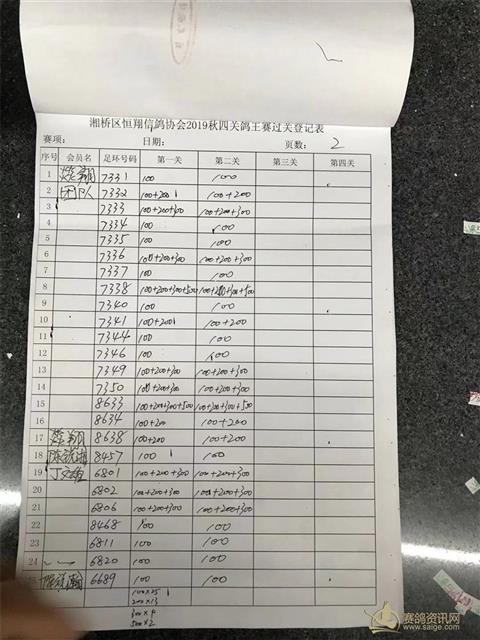 湘桥区恒翔信鸽协会2019秋四关鸽王赛过关登记表
赛项： 日期： 页数： 2
序号 会员名 足环号码 第一关 第二关 第三关 第四关
1 7331 100 100
2 团队 7332 100+200 100+200
3 7333 100+200+300 100+200+300
4 7334 100 100
5 7335 100 100
6 7336 100+200+300 100+200+300
7 7337 100 100
8 7338 100+200+300+500 100+200+300+500
9 7340 100 100
10 7341 100+200 100+200
11 7344 100 100
12 7346 100 100
13 7349 100+200+300 100+200+300
14 7350 100+200+300 100+200+300
15 8633 100+200+300+500 100+200+300+500
16 8634 100+200 100+200
17 8638 100+200 100+200
18 8457 100 100
19 6801 100+200+300 100+200+300
20 6802 100+200+300 100+200+300
21 6806 100+200+300 100+200+300
22 8468 100 100
23 6811 100 100
24 6820 100 100
6689 100 100
100×25
200×13
300×9
500×2
赛鸽资讯网
www.saige.com